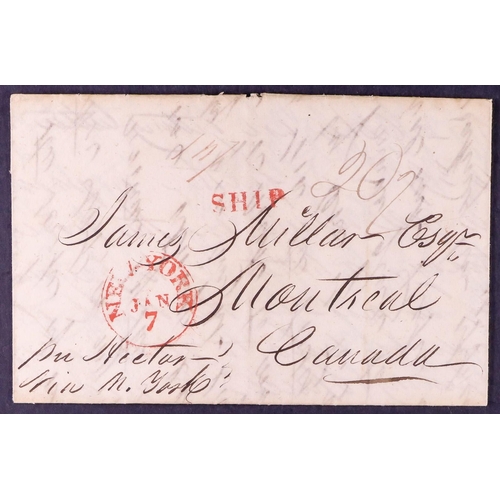 20
SHIP
James Millar Esqr
NEW-YORK
JAN
7
Montreal
Canada
per Hector
via N. York